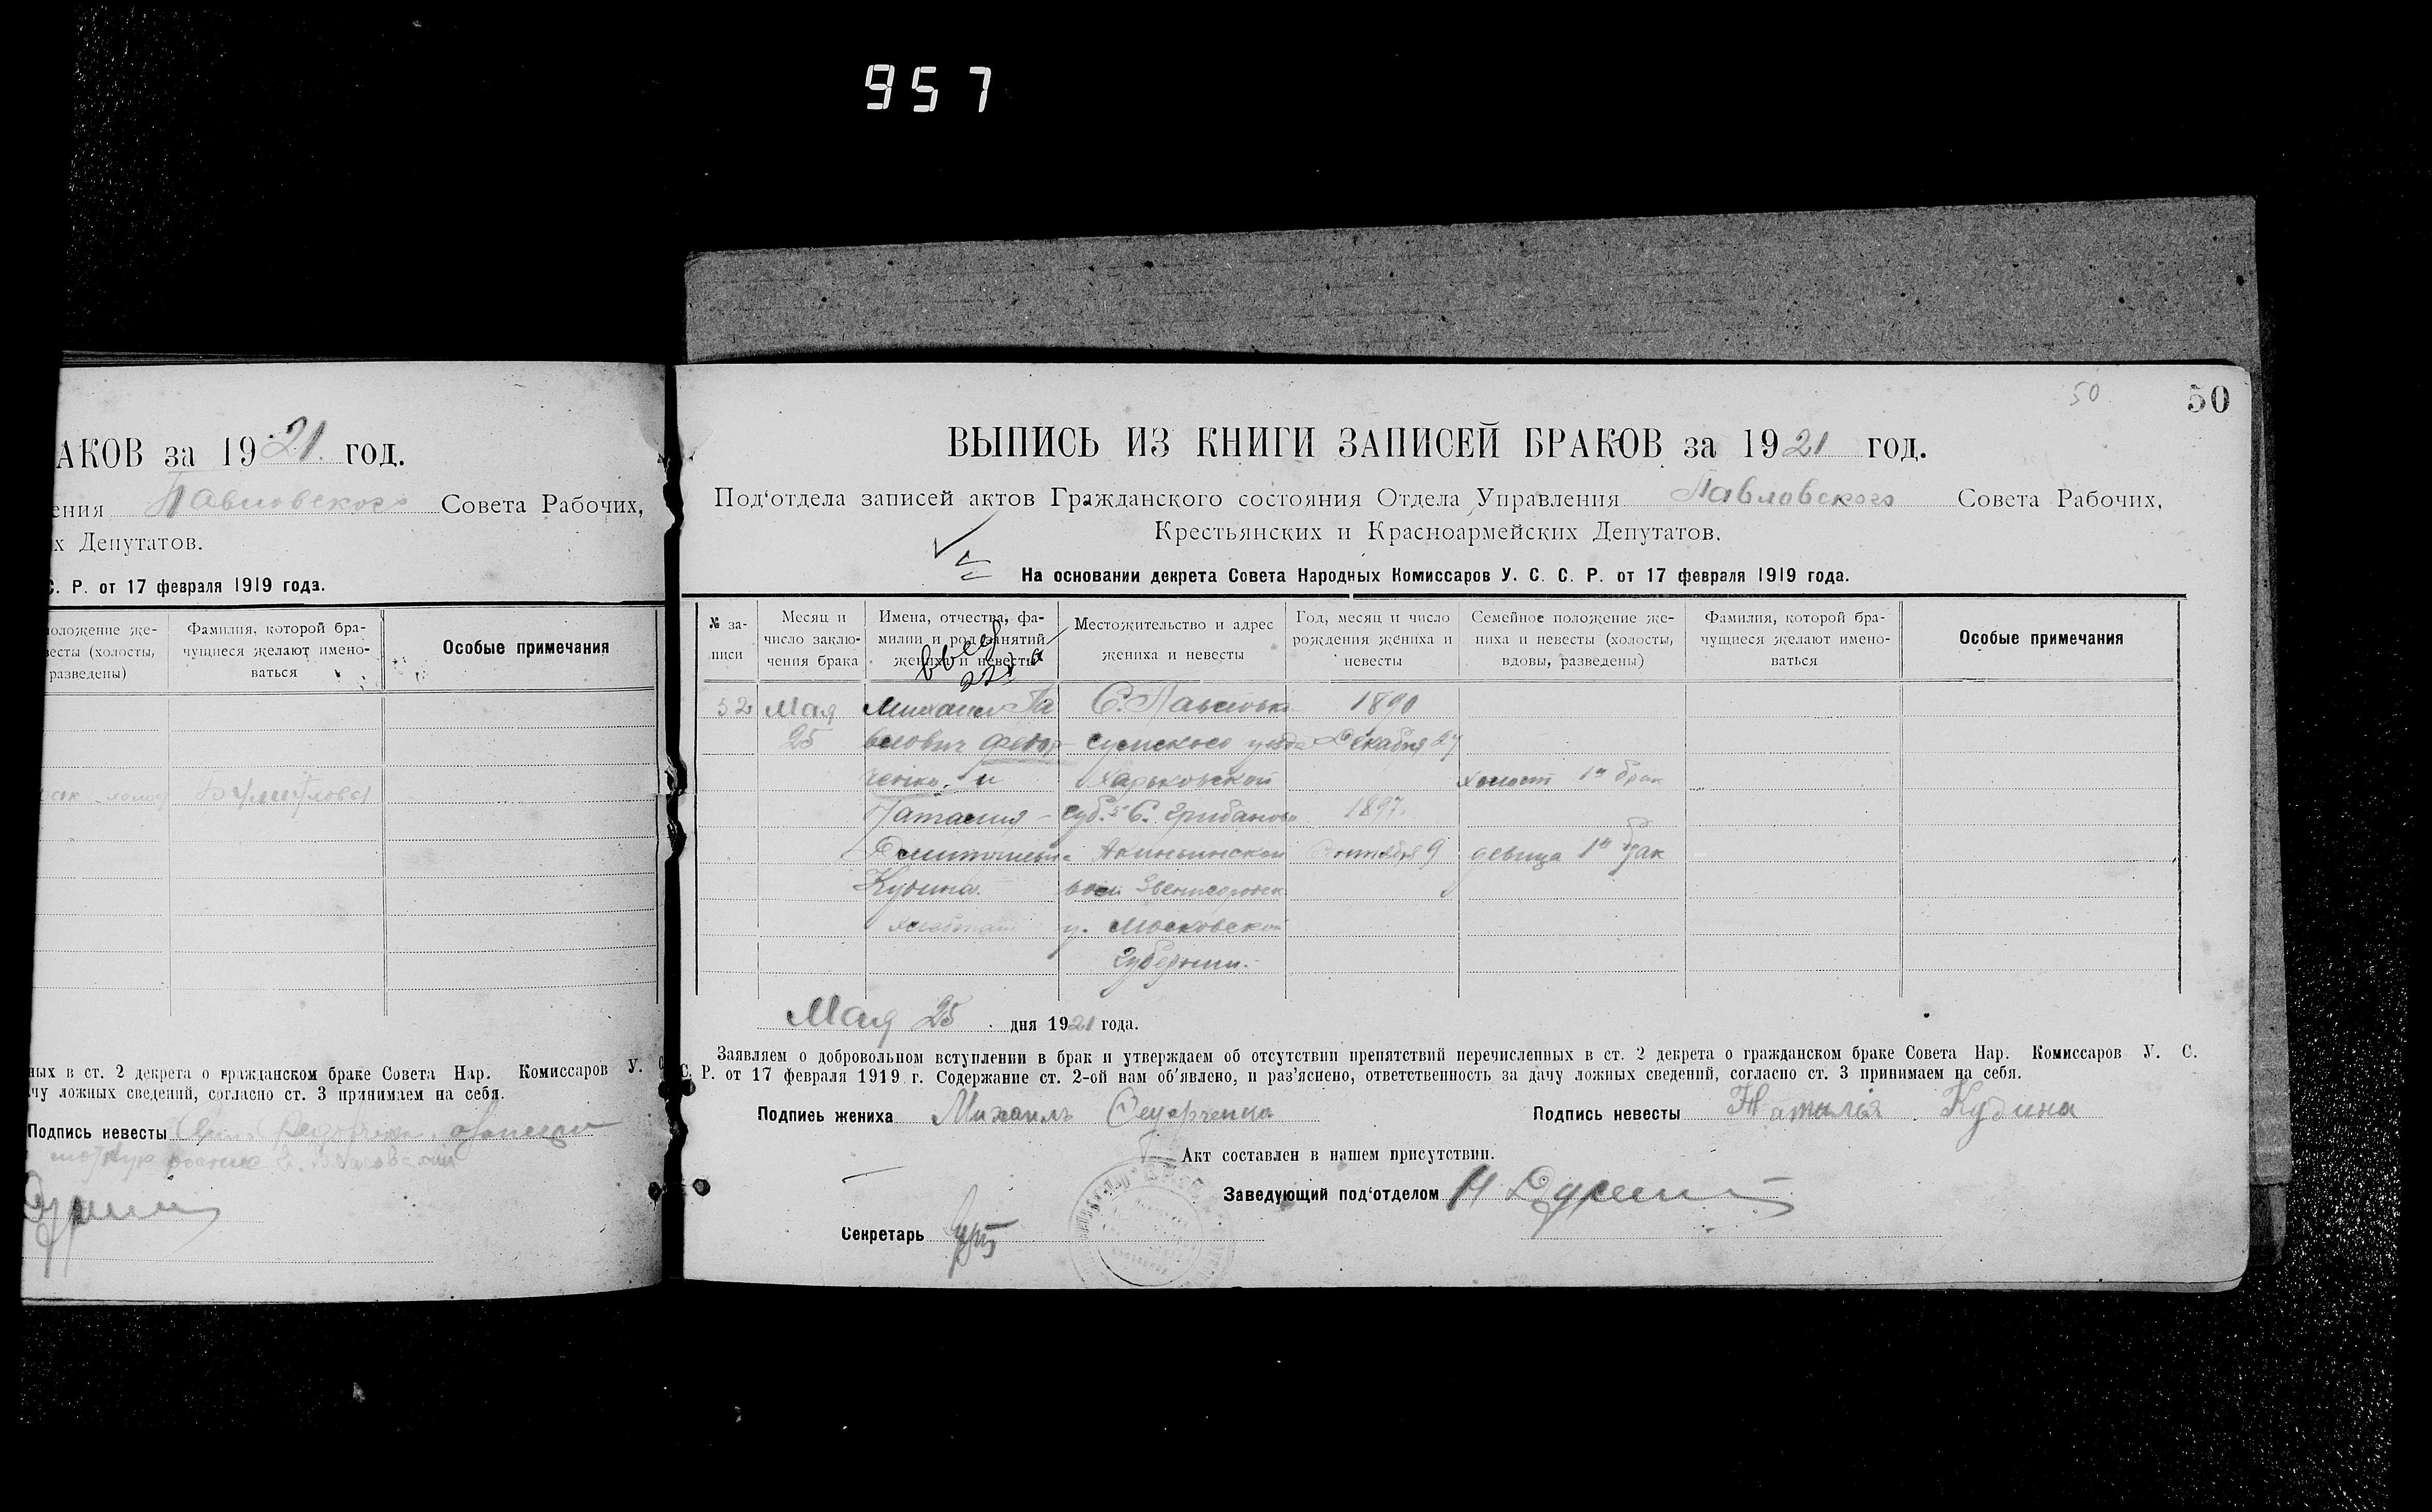 957
АКОВ за 1921 год.
ения Павловского Совета Рабочих,
х Депутатов.
С. Р. от 17 февраля 1919 года.
оложение же-
весты (холосты,
разведены)
Фамилия, которой бра-
чущиеся желают имено-
ваться
Особые примечания
ных в ст. 2 декрета о гражданском браке Совета Нар. Комиссаров У. С
чу ложных сведений, согласно ст. 3 принимаем на себя.
Подпись невесты
50
50
ВЫПИСЬ ИЗ КНИГИ ЗАПИСЕЙ БРАКОВ за 1921 год.
Под‘отдела записей актов Гражданского состояния Отдела Управления Павловского Совета Рабочих,
Крестьянских и Красноармейских Депутатов.
На основании декрета Совета Народных Комиссаров У. С. С. Р. от 17 февраля 1919 года.
№ за-
писи
Месяц и
число заклю-
чения брака
Имена, отчества, фа-
милии и род занятий
жениха и невесты
Местожительство и адрес
жениха и невесты
Год, месяц и число
рождения жениха и
невесты
Семейное положение же-
ниха и невесты (холосты,
вдовы, разведены)
Фамилия, которой бра-
чущиеся желают имено-
ваться
Особые примечания
52
Мая
25
Михаил Па
влович Федор-
ченко и
Наталия
Кудина
С. Павловка
Сумского уезда
Харьковской
губ. С. Грибаново
вол. Звенигородск
у. Московской
Губернии.
1890
Декабря 27
1897
Сентября 9
холост 1й брак
девица 1й брак
Мая 25 дня 1921 года.
Заявляем о добровольном вступлении в брак и утверждаем об отсутствии препятствий перечисленных в ст. 2 декрета о гражданском браке Совета Нар. Комиссаров У. С.
С. Р. от 17 февраля 1919 г. Содержание ст. 2-ой нам об'явлено, и раз'яснено, ответственность за дачу ложных сведений, согласно ст. 3 принимаем на себя.
Подпись жениха Михаилъ Федорченко
Подпись невесты Наталія Кудина
Акт составлен в нашем присутствии.
Заведующий под‘отделом
Секретарь